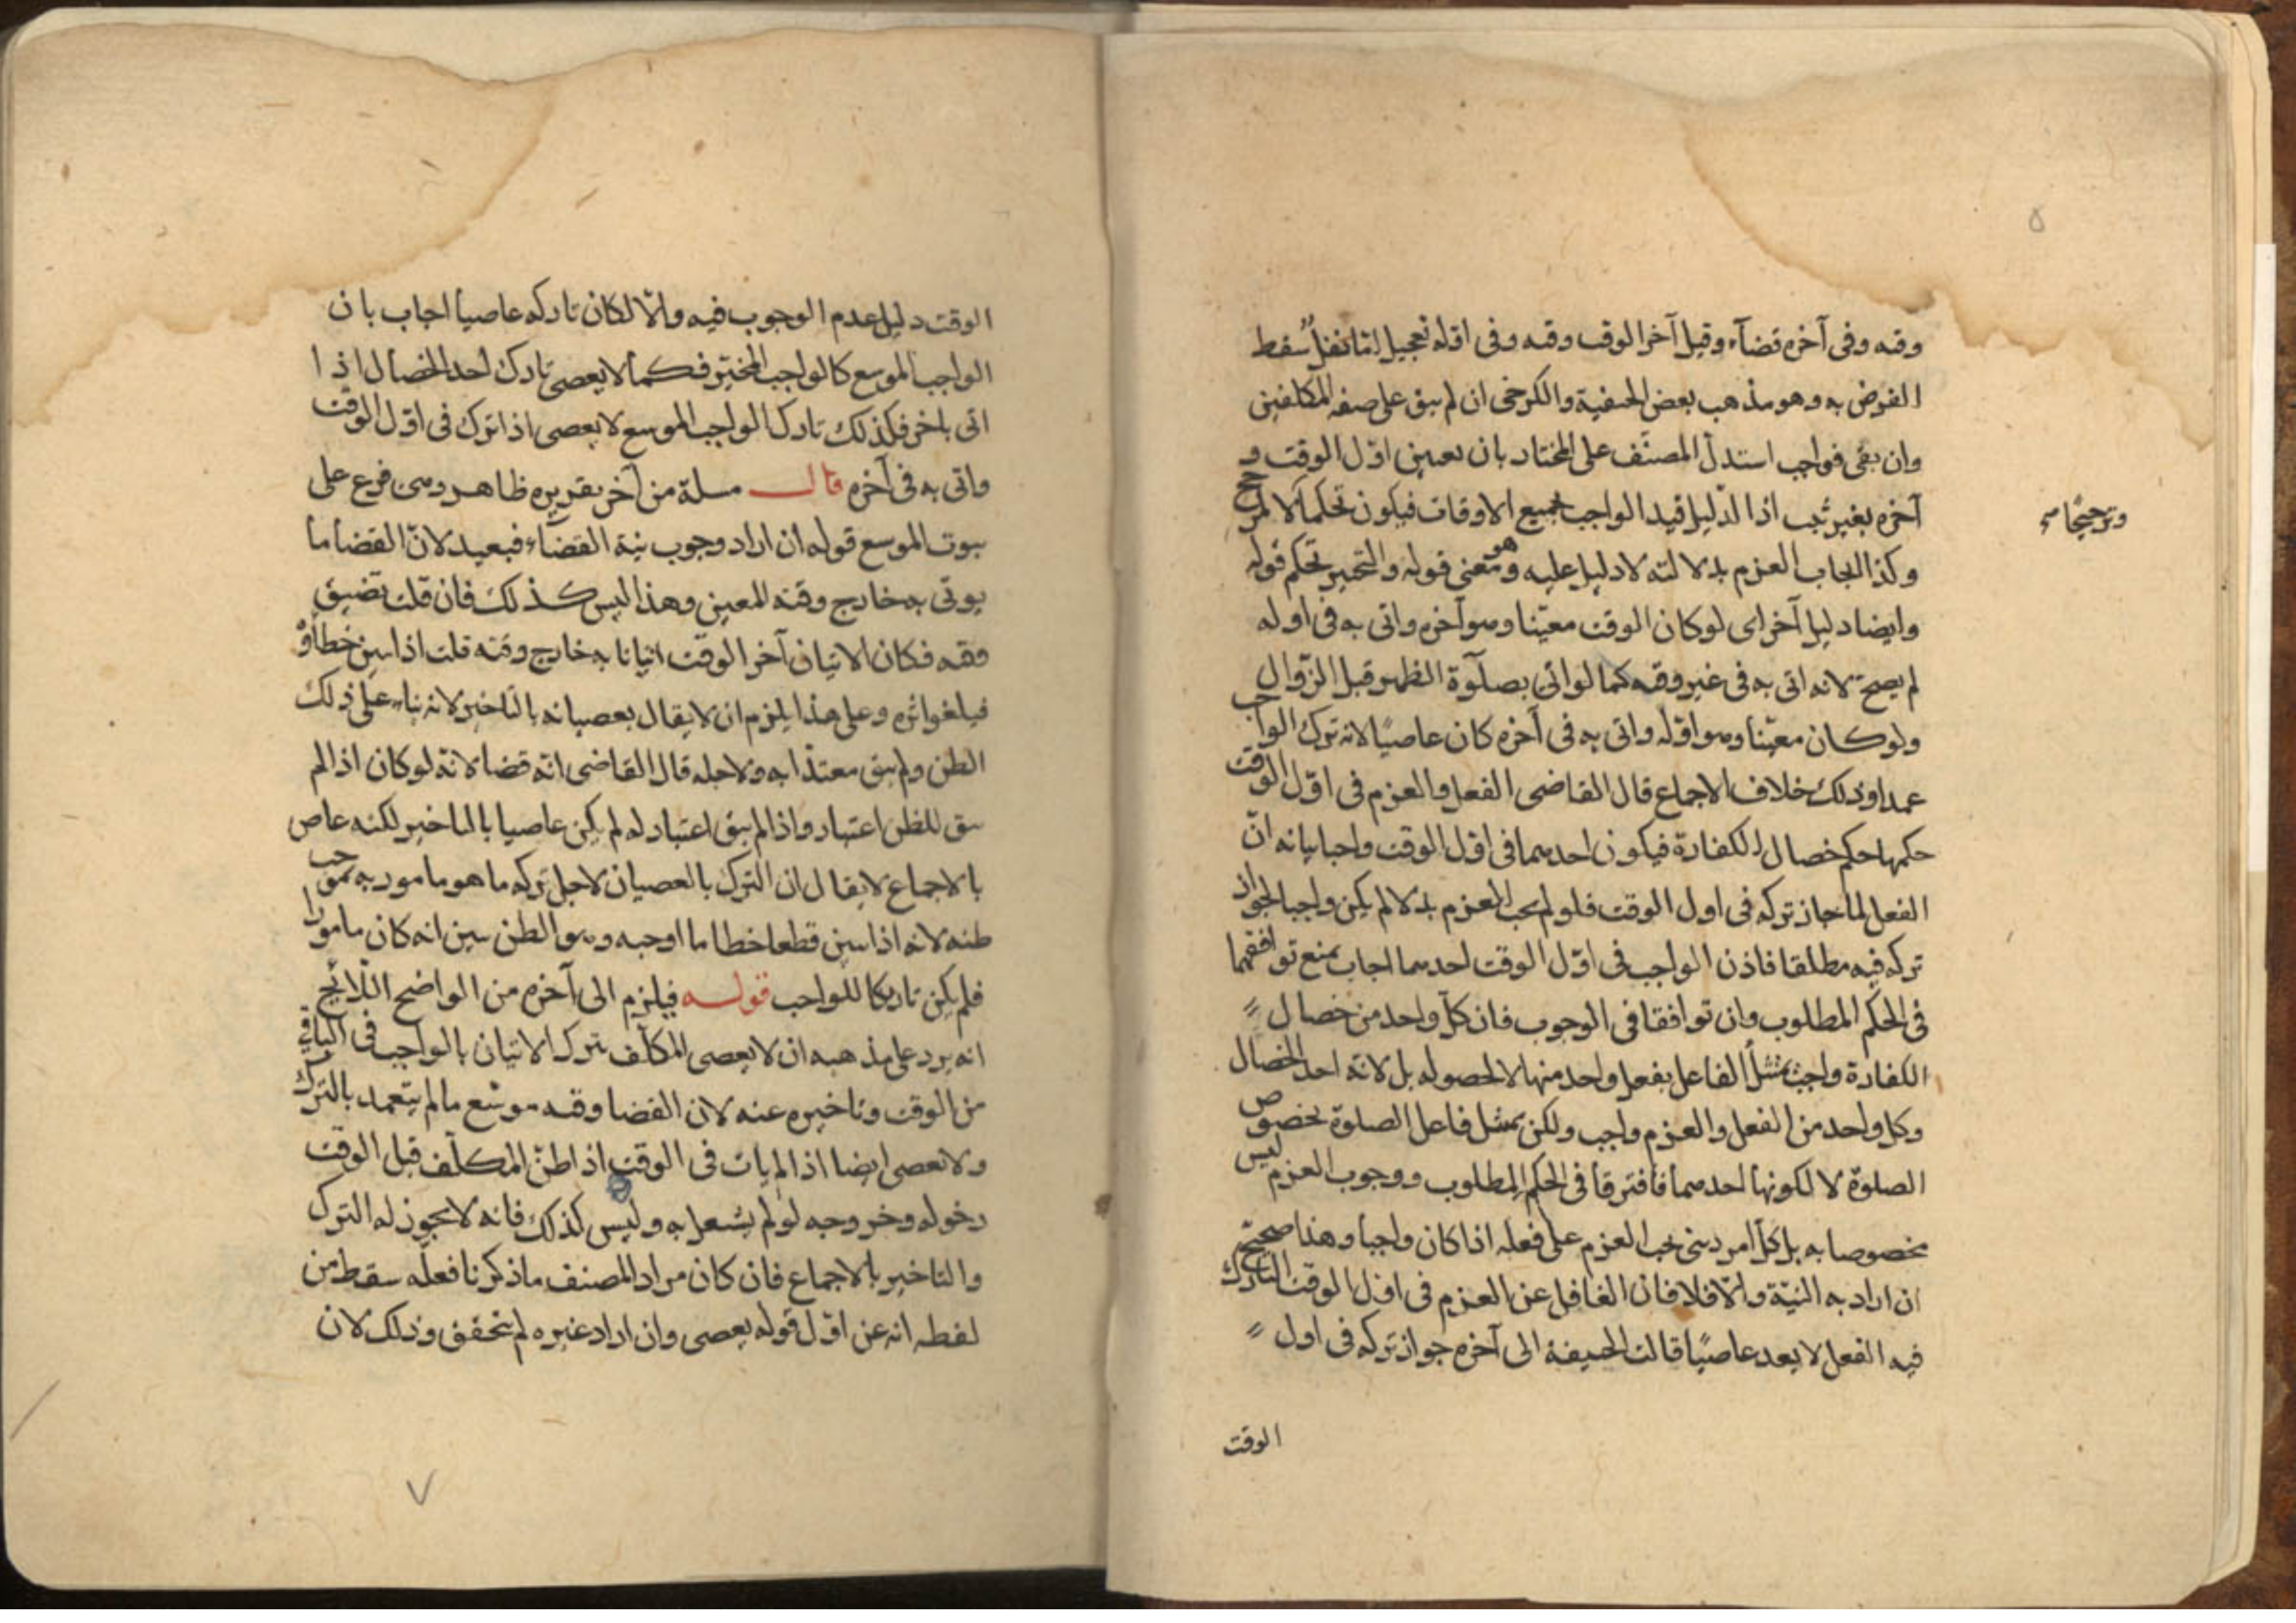 ٥
وقته وفى آخره قضآء وقيل آخر الوقت وقته وفى اوّله تعجيل لنا نفل سقط
الفرض به وهو مذهب بعض الحنفية والكرخى ان لم يبق على صفة المكلفين
وان بقى فواجب استدل المصنّف على المختار بان تعيين اوّل الوقت و
آخره بغير ثبت اذ الدليل قيد الواجب بجميع الاوقات فيكون تحكما لا
وترجيحا صح
وكذا ايجاب العزم بدلا لته لا دليل عليه وهو معنى قوله والتخيير تحكم قوله
وايضا دليل آخر اى لو كان الوقت معيّنا وهو آخره واتى به فى اوله
لم يصح لانه اتى به فى غير وقته كما لو اتى بصلوة الظهر قبل الزوال
ولو كان معيّنا وهو اوّله واتى به فى آخره كان عاصيًا لانه ترك الواجب
عمدا وذلك خلاف الاجماع قال القاضى الفعل والعزم فى اوّل الوقت
حكمها حكم خصال الكفارة فيكون احدهما فى اوّل الوقت واجبا بيانه انّ
الفعل لما جاز تركه فى اول الوقت فلو لم يجب العزم بدلا لم يكن واجبا لجواز
تركه فيه مطلقا فاذن الواجب فى اوّل الوقت احدهما اجاب بمنع توافقهما
فى الحكم المطلوب وان توافقا فى الوجوب فان كل واحد من خصال
الكفارة واجب الفاعل بفعل واحد منها لا لحصوله بل لانه احد الخصال
وكل واحد من الفعل والعزم واجب ولكن يمتثل فاعل الصلوة بخصوص
الصلوة لا لكونها احدهما فافترقا فى الحكم المطلوب ووجوب العزم ليس
مخصوصا به بل كل امر دينى يجب العزم على فعله اذا كان واجبا وهذا صحيح
ان اراد به النيّة والّا فلا فان الغافل عن العزم فى اوّل الوقت التارك
فيه الفعل لا يعد عاصيًا قالت الحنيفة الى آخره جواز تركه فى اول
الوقت
الوقت دليل عدم الوجوب فيه والّا لكان تاركه عاصيا اجاب بان
الواجب الموسع كالواجب المخيّر فكما لا يعصى تارك احد الخصال اذا
اتى باخر فكذلك تارك الواجب الموسع لا يعصى اذا ترك فى اوّل الوقت
واتى به فى آخره قال مسلة من آخر تقريره ظاهر وهى فرع على
ثبوت الموسع قوله ان اراد وجوب نية القضآء فبعيد لانّ القضا ما
يوتى به خارج وقته المعين وهذا ليس كذلك فان قلت تضيق
وقته فكان الاتيان آخر الوقت اتيانا به خارج وقته قلت اذا تبين خطاؤ
فيلغو اثره وعلى هذا يلزم ان لا يقال بعصيانه بالتاخير لانه بناء على ذلك
الظن ولم يبق معتدّا به ولاجله قال القاضى انّه قضا لانّه لو كان اذا لم
يبق للظن اعتبار واذا لم يبق اعتبار له لم يكن عاصيا بالتاخير لكنه عاص
بالاجماع لا يقال ان الترك بالعصيان لاجل تركه ما هو مامور به بموجب
ظنه لانه اذا تبين قطعا خطا ما اوجبه وهو الظن تبين انه كان مامورا
فلم يكن تاركا للواجب قوله فيلزم الى آخره من الواضح اللائح
انه يرد على مذهبه ان لا يعصى المكلف بترك الاتيان بالواجب فى الباقى
من الوقت وتاخيره عنه لان القضا وقته موسّع ما لم يتعمد بالترك
ولا يعصى ايضا اذا لم يات فى الوقت اذ اظنّ المكلّف قبل الوقت
دخوله وخروجه لو لم يشتغل به وليس كذلك فانه لا يجوز له الترك
والتاخير بالاجماع فان كان مراد المصنف ما ذكرنا فعله سقط من
لفظه انه عن اوّل قوله يعصى وان اراد غيره لم يتحقق وذلك لان
٧